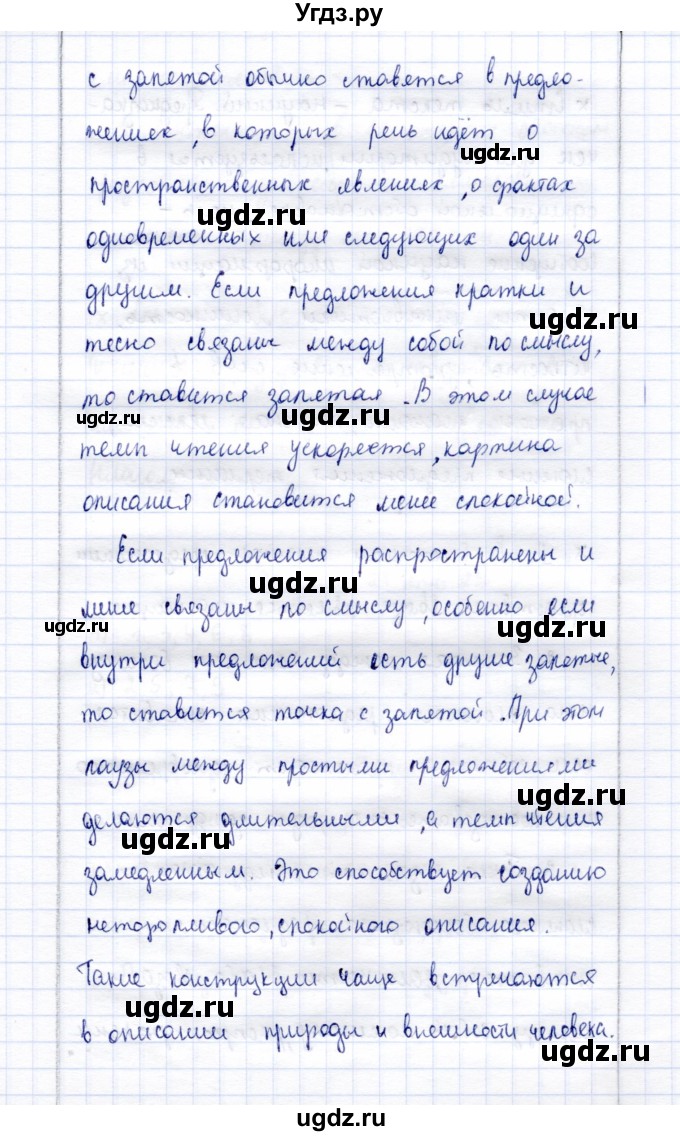 Угдз.ру
с запятой обычно ставятся в предло-
жениях, в которых речь идёт о
ugdz.ru
пространственных явлениях, о фактах
ugdz.ru
одновременных или следующих один за
другим. Если предложения кратки и
ugdz.ru
тесно связаны между собой по смыслу,
то ставится запятая. В этом случае
ugdz.ru
ugdz.ru
темп чтения ускоряется, картина
описания становится менее спокойной.
Если предложения распространены и
ugdz.ru
менее связаны по смыслу, особенно если
ugdz.ru
ugdz.ru
внутри предложений есть другие запятые,
то ставится точка с запятой. При этом
паузы между простыми предложениями
делаются длительными, а темп чтения
ugdz.ru
ugdz.ru
замедленным. Это способствует созданию
неторопливого, спокойного описания.
Такие конструкции чаще встречаются
ugdz.ru
в описании природы и внешности человека.
ugdz.ru
ugdz.ru